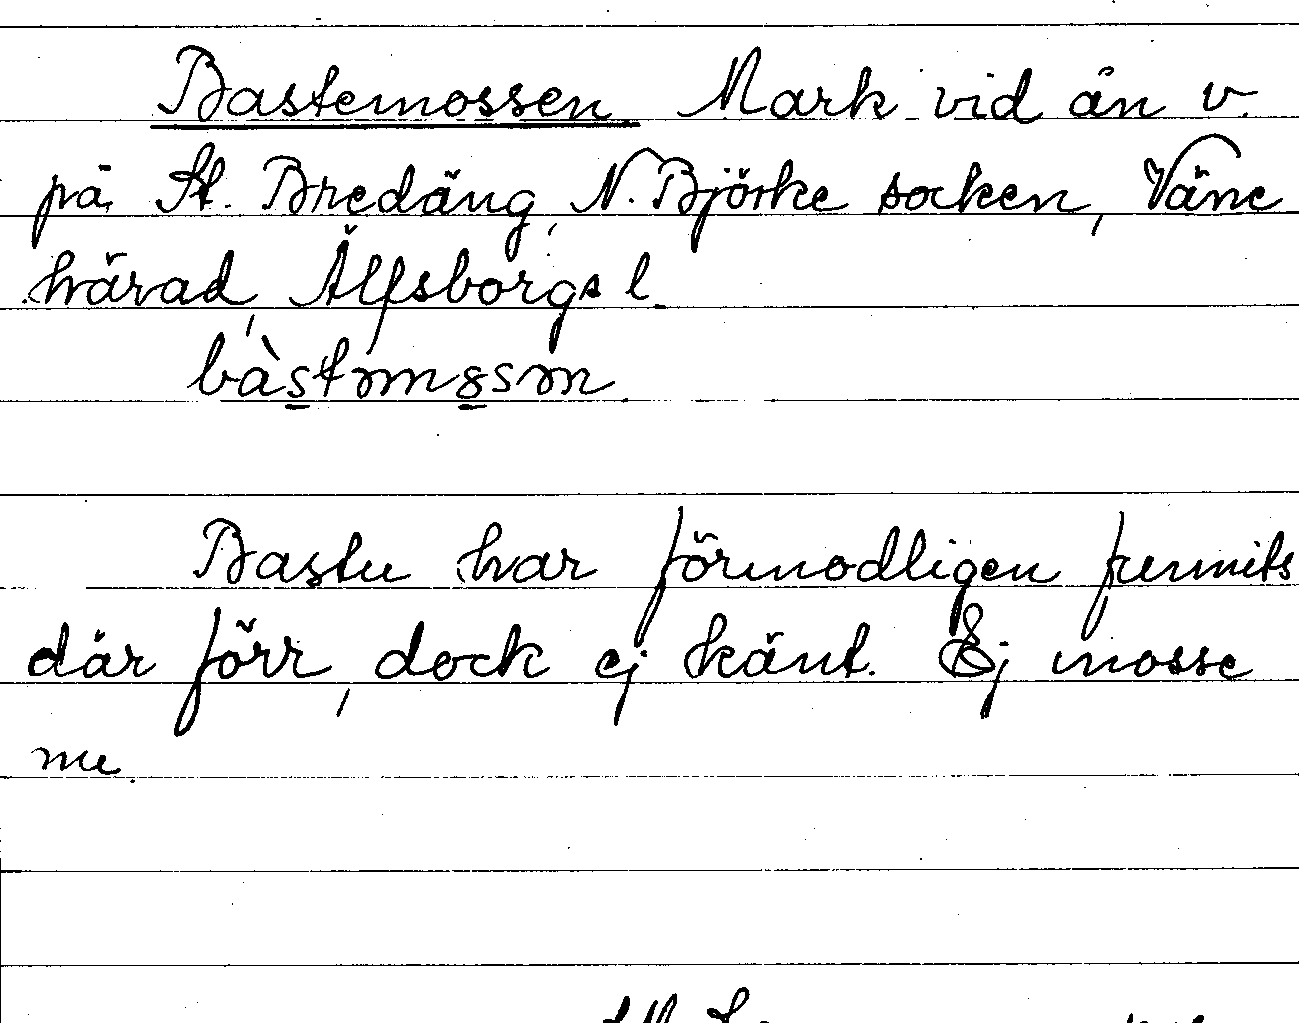 Bastemossen Mark vid ån v.
på St. Bredäng, N. Björke socken, Väne
härad, Älfsborgs l.
bàstəmȣsən
Bastu har förmodligen funnits
där förr, dock ej känt. Ej mosse
nu.